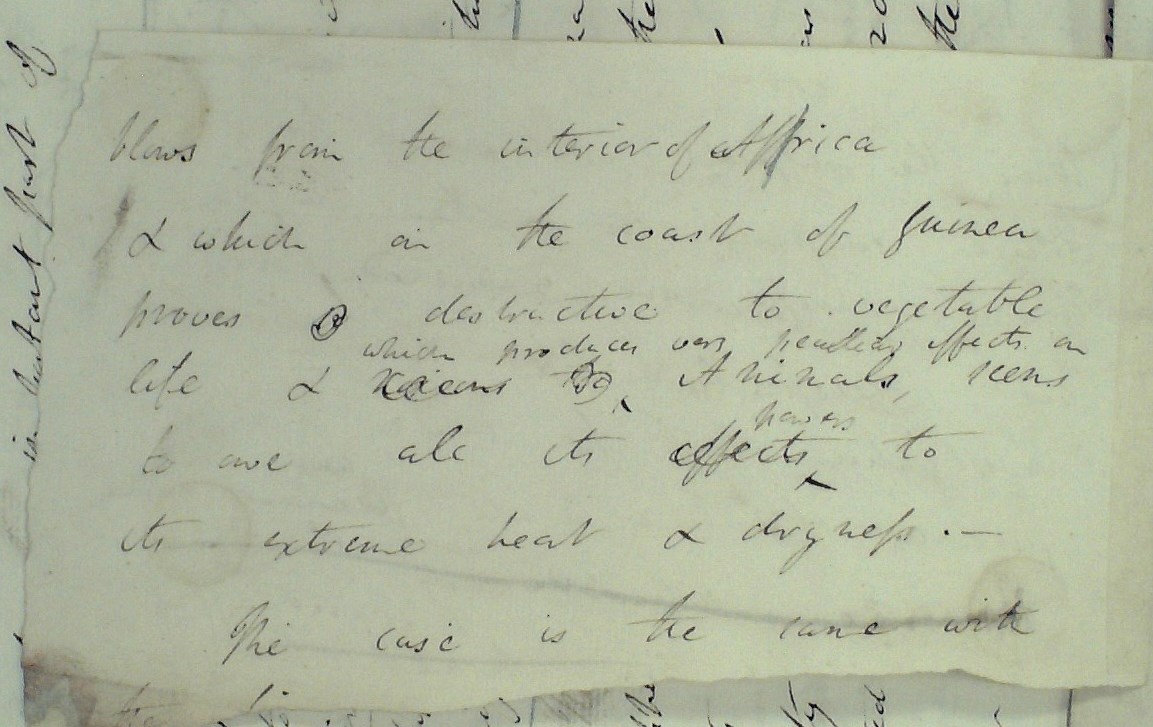 blows from the interior of Affrica
& which on the coast of Guinea
proves destructive to vegetable
which produces very peculiar effects on
life & Animals, seems
powers
to owe all its effects to
its extreme heat & dryness. —
The case is the same with
the
instant part of